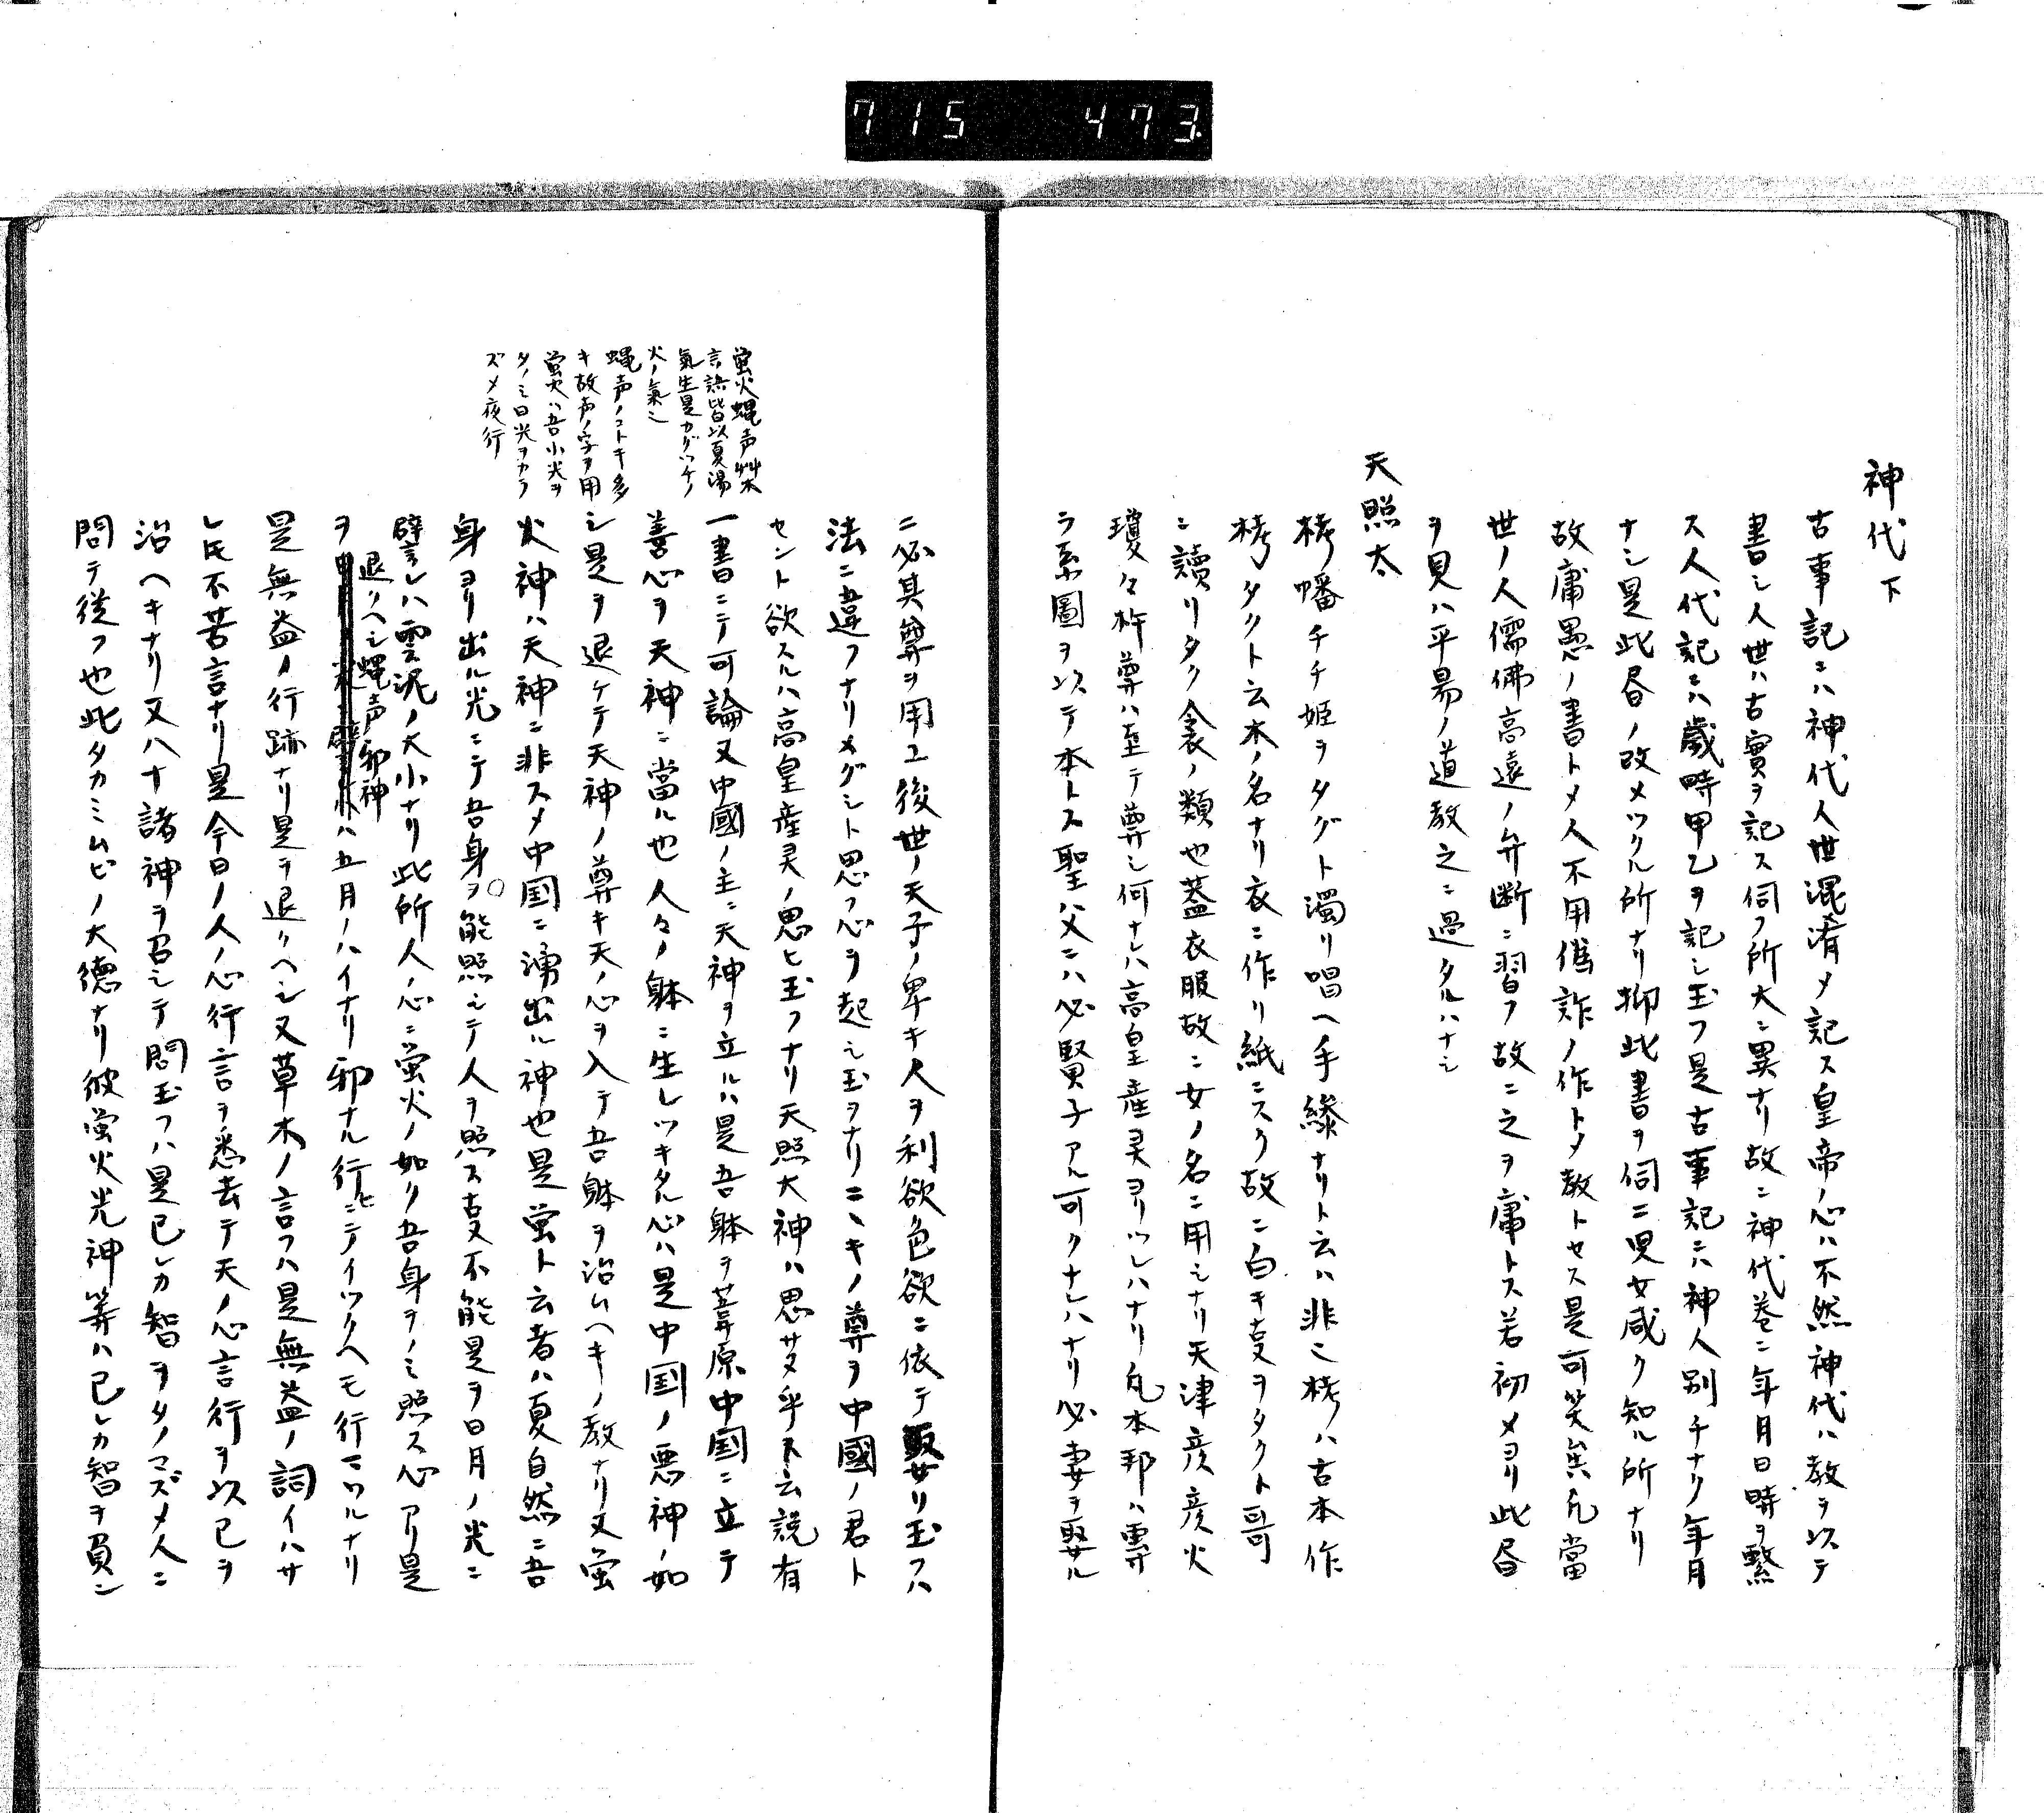 715 473
神代下
古事記ニハ神代人世混淆〆記ス皇帝ノ心ハ不然神代ハ教ヲ以テ
書シ人世ハ古實ヲ記ス伺フ所大ニ異ナリ故ニ神代巻ニ年月日時ヲ繋
ス人代記ニハ歳時甲乙ヲ記シ玉フ是古事記ニハ神人別チナク年月
ナシ是此昏ノ改メツクル所ナリ抑此書ヲ伺ニ児女咸ク知ル所ナリ
故庸愚ノ書ト〆人不用偽詐ノ作ト〆教トセス是可笑矣凡當
世ノ人儒佛高遠ノ弁断ニ習フ故ニ之ヲ庸トス若初メヨリ此昏
ヲ見ハ平易ノ道教之ニ過タルハナシ
天照太
栲幡チチ姫ヲタグト濁リ唱ヘ手繰ナリト云ハ非也栲ハ古本作
栲タクト云木ノ名ナリ衣ニ作リ紙ニスク故ニ白キ叓ヲタクト哥
ニ讀リタク衾ノ類也蓋衣服故ニ女ノ名ニ用シナリ天津彦彦火
瓊々杵尊ハ至テ尊シ何ナレハ高皇産灵ヨリツレハナリ凡本邦ハ専
ラ系圖ヲ以テ本トス聖父ニハ必賢子アル可クナレハナリ必妻ヲ娶ル
ニ必其尊ヲ用ユ後世ノ天子ノ卑キ人ヲ利欲色欲ニ依テ娶リ玉フハ
法ニ違フナリメグシト思フ心ヲ起シ玉ヲナリニヽキノ尊ヲ中國ノ君ト
セント欲スルハ高皇産灵ノ思ヒ玉フナリ天照大神ハ思サヌ乎ト云説有
一書ニテ可論又中國ノ主ニ天神ヲ立ルハ是吾躰ヲ葦原中国ニ立テ
善心ヲ天神ニ當ル也人々ノ躰ニ生レツキタル心ハ是中国ノ悪神ノ如
シ是ヲ退ケテ天神ノ尊キ天ノ心ヲ入テ吾躰ヲ治ムヘキノ教ナリ又蛍
火神ハ天神ニ非ス〆中国ニ湧出ル神也是蛍ト云者ハ夏自然ニ吾
身ヨリ出ル光ニテ吾身ヲ能照シテ人ヲ照ス叓不能是ヲ日月ノ光ニ
譬レハ雲泥ノ大小ナリ此所人ノ心ニ蛍火ノ如ク吾身ヲノミ照ス心アリ是
退クヘシ蠅声邪神
ヲハ五月ノハイナリ邪ナル行ヒニテイツクヘモ行ワツルナリ
是無益ノ行跡ナリ是ヲ退クヘシ又草木ノ言フハ是無益ノ詞イハサ
レ氏不苦言ナリ是今日ノ人ノ心行言ヲ悉去テ天ノ心言行ヲ以已ヲ
治ヘキナリ又八十諸神ヲ召シテ問玉フハ是已レカ智ヲタノマズ〆人ニ
問テ従フ也此タカミムビノ大徳ナリ彼蛍火光神等ハ已レカ智ヲ負ン
蛍火蠅声艸木
言語皆以夏湯
氣生是カグツチノ
火ノ氣也
蠅声ノコトキ多
キ故声ノ字ヲ用
蛍火ハ吾小光ヲ
タノミ日光ヲカラ
ズ〆夜行